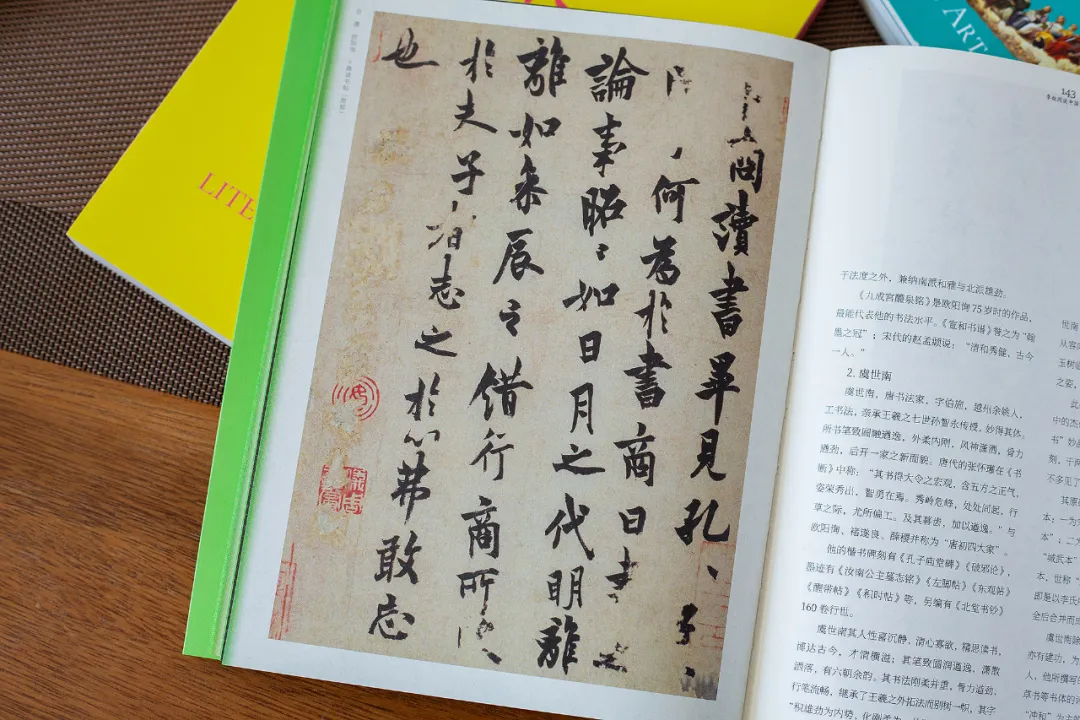 LITE
ART
也
於夫子者志之於心弗敢忘
離如參辰之錯行商所
論事昭〻如日月之代明離
何為於書商曰書
問讀書畢見孔〻子〻
143
于法度之外，兼纳南派和雅与北派雄劲。
《九成宫醴泉铭》是欧阳询75岁时的作品，
最能代表他的书法水平。《宣和书谱》誉之为“翰
墨之冠”；宋代的赵孟頫说：“清和秀健，古今
一人。”
2. 虞世南
虞世南，唐书法家，字伯施，越州余姚人，
工书法，亲承王羲之七世孙智永传授，妙得其体。
所书笔致圆融遒逸，外柔内刚，风神潇洒，骨力
遒劲，后开一家之新面貌。唐代的张怀瓘在《书
断》中称：“其书得大令之宏观，含五方之正气，
姿荣秀出，智勇在焉。秀岭危峰，处处间起，行
草之际，尤所偏工。及其暮齿，加以遒逸。”与
欧阳询、褚遂良、薛稷并称为“唐初四大家”。
他的楷书碑刻有《孔子庙堂碑》《破邪论》，
墨迹有《汝南公主墓志铭》《左脚帖》《东观帖》
《醒带帖》《积时帖》等，另编有《北堂书钞》
160卷行世。
虞世南其人性喜沉静，清心寡欲，精思读书，
博达古今，才情横溢；其笔致圆润遒逸，潇散
洒落，有六朝余韵。其书法刚柔并重，骨力遒劲，
行笔流畅，继承了王羲之外拓法而别树一帜，其字
“积雄劲为内势，化刚柔为